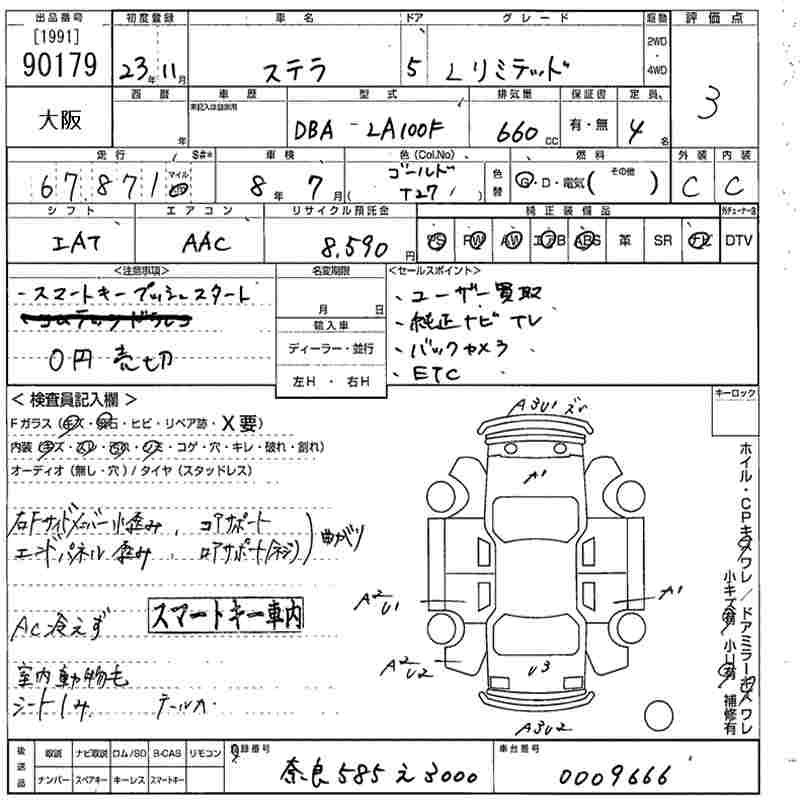 出品番号 初度登録 車名 ドア グレード 駆動 評価点
[1991]
90179 23年11月 ステラ 5 Lリミテッド 2WD・4WD 3
大阪 西暦 年 車歴 未記入は自家用 型式 排気量 保証書 定員
DBA-LA100F 660cc 有・無 4名
走行 S#* 車検 色(Col.No) 色替 燃料 外装 内装
67,871マイルkm 8年7月 (ゴールド T27) G・D・電気(その他) C C
シフト エアコン リサイクル預託金 純正装備品
IAT AAC 8,590円 PS PW AW エアB ABS 革 SR ナビ DTV
<注意事項> 名変期限 <セールスポイント>
・スマートキー プッシュスタート 月 日 ・ユーザー買取
輸入車 ・純正ナビ TV
0円売切 ディーラー・並行 ・バックカメラ
左H ・ 右H ・ETC
< 検査員記入欄 > キーロック
Fガラス (キズ・飛石・ヒビ・リペア跡・X要)
内装 (キズ・スレ・汚れ・シミ・コゲ・穴・キレ・破れ・割れ)
オーディオ (無し・穴) / タイヤ (スタッドレス)
右Fサイドメンバー小歪み、コアサポート
エンドパネル歪み、ロアサポート(ネジ) 曲がり
AC冷えず スマートキー車内
室内動物毛
シートシミ テールカ
A3U1 ズレ
A1
A2 U1 A1
A2 U2 U3
A3U2
ホイル・CPキズワレ / ドアミラーキズワレ
小キズ有 小U有 補修有
後送品 取説 ナビ取説 ロム/SD B-CAS リモコン 登録番号 車台番号
ナンバー スペアキー キーレス スマートキー 奈良 585 え 3000 0009666